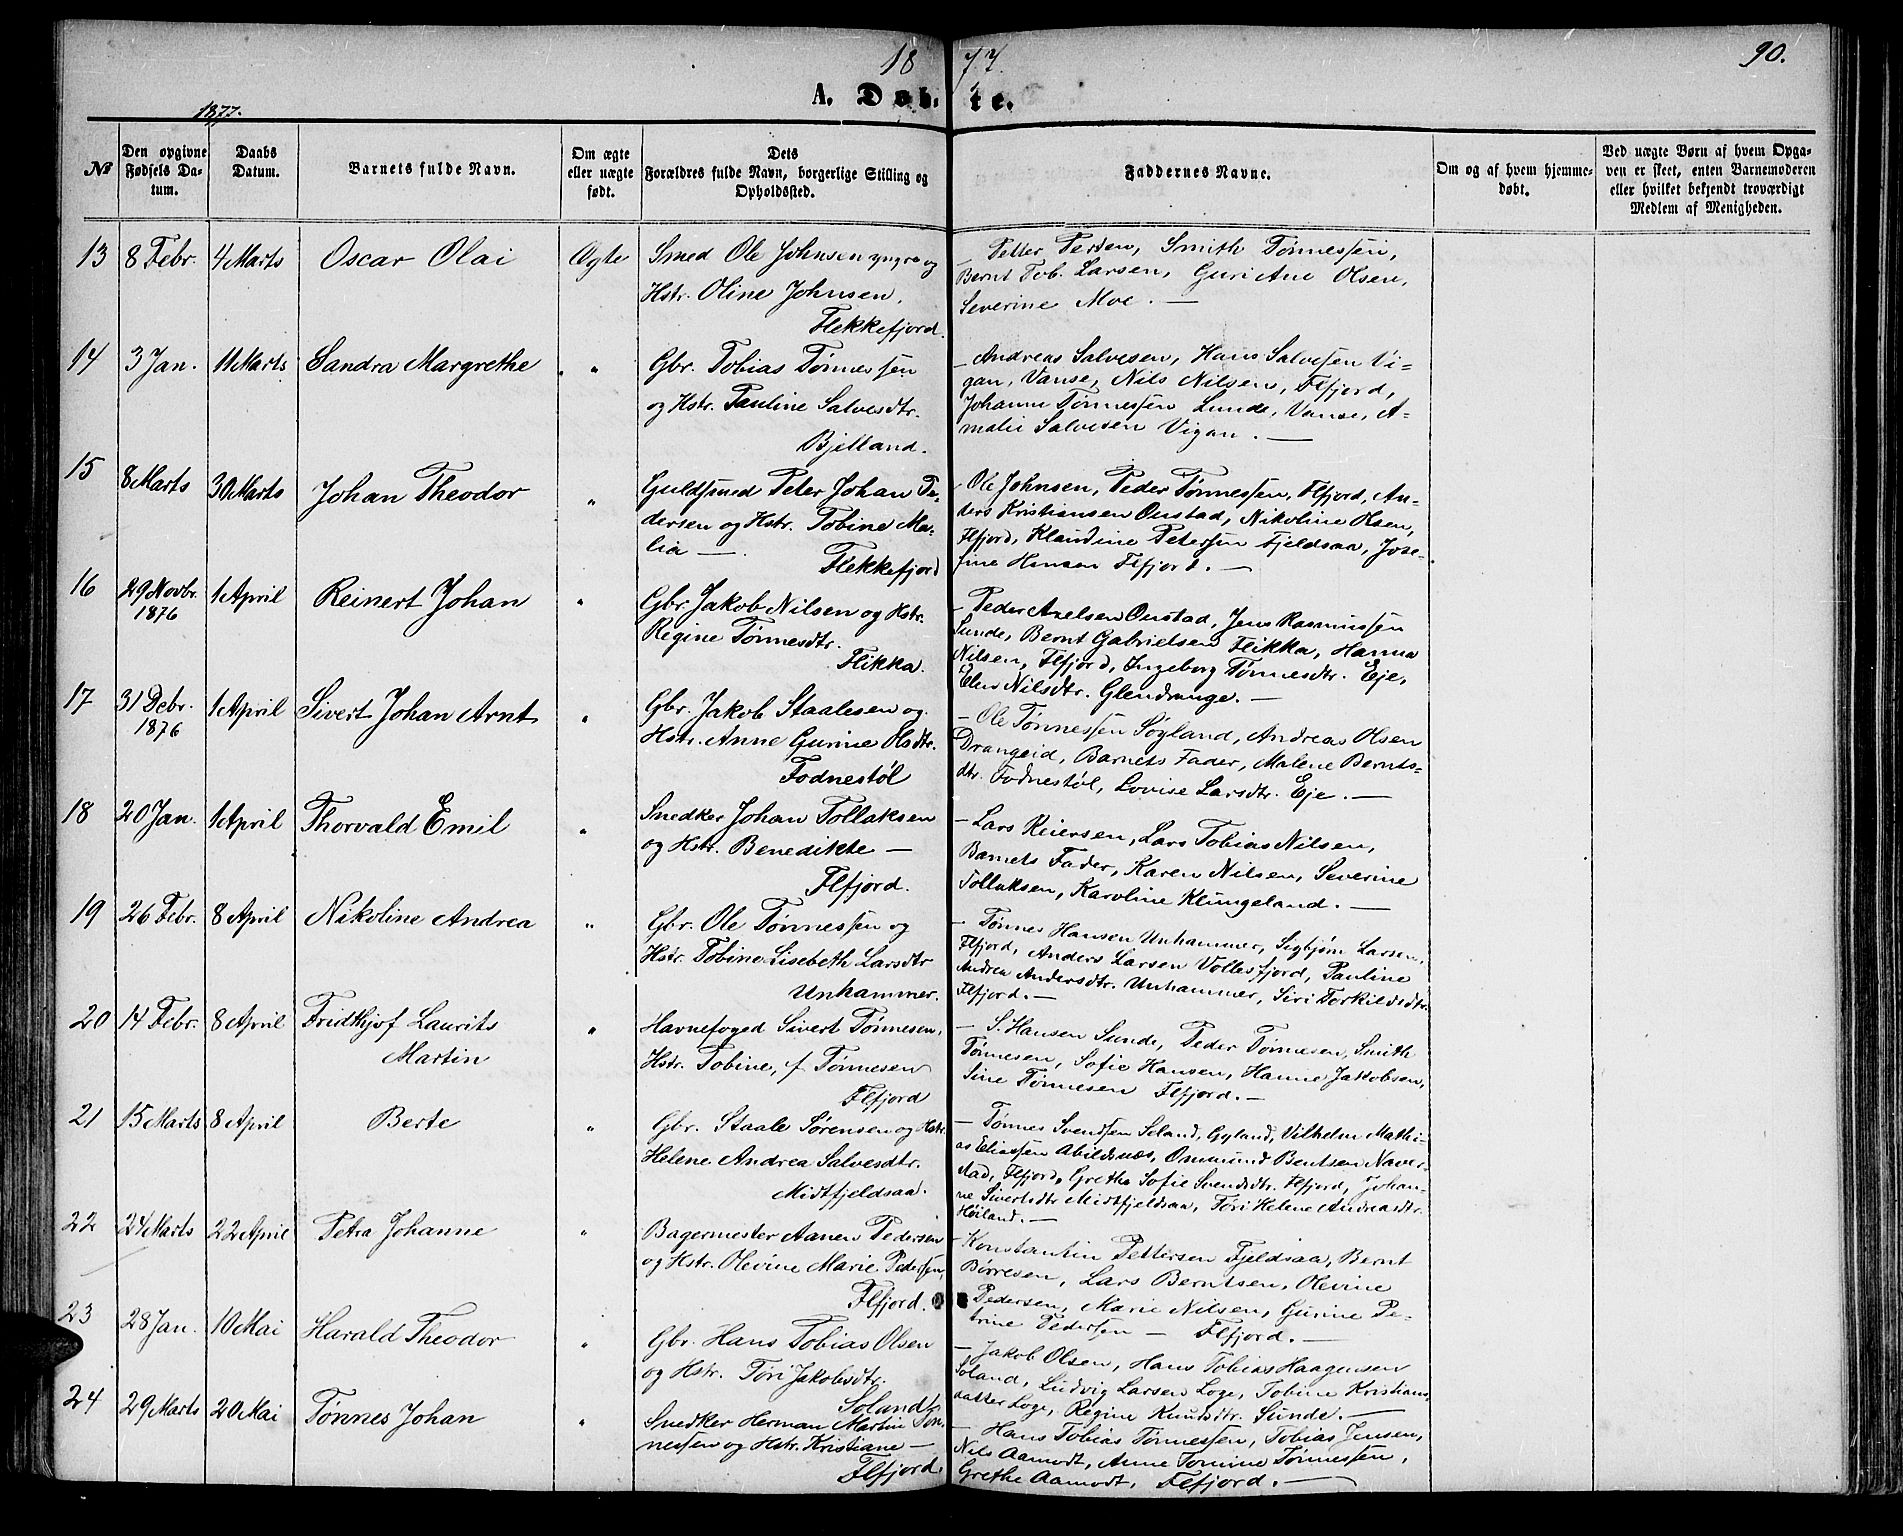 1877.
90.
A. Døbte.
1877.
No
Den opgivne Fødsels Datum.
Daabs Datum.
Barnets fulde Navn.
Om ægte eller uægte født.
Dets Forældres fulde Navn, borgerlige Stilling og Opholdssted.
Faddernes Navne.
Om og af hvem hjemmedøbt.
Ved uægte Børn af hvem Opgaven er skeet, enten Barnemoderen eller hvilket bekjendt troværdigt Medlem af Menigheden.
13 8 Febr. 4 Marts Oscar Olai Ægte
Smed Ole Johnsen yngre og
Hstr. Oline Johnsen,
Flekkefjord.
– Petter Persen, Smith Tønnessen,
Bernt Tob. Larsen, Guri Ane Olsen,
Severine Moe. —
14 3 Jan. 11 Marts Sandra Margrethe "
Gbr. Tobias Tønnessen
og Hstr. Pauline Salvesdtr.
Bjelland.
– Andreas Salvesen, Hans Salvesen Vi-
gan, Vanse, Nils Nilsen, Flfjord,
Johanne Tønnessen Lunde, Vanse, A-
malie Salvesen Vigan. —
15 8 Marts 30 Marts Johan Theodor "
Guldsmed Peter Johan Pe-
dersen og Hstr. Tobine Ma-
lia —
Flekkefjord
– Ole Johnsen, Peder Tønnessen, Flfjord, An-
ders Kristiansen Onstad, Nikoline Olsen,
Flfjord, Klaudine Petersen Fjeldsaa, Jose-
fine Hansen Flfjord. —
16 29 Novbr. 1876 1 April Reinert Johan "
Gbr. Jakob Nilsen og Hstr.
Regine Tønnesdtr.
Flikka.
– Peder Axelsen Onstad, Jens Rasmussen
Sunde, Bernt Gabrielsen Flikka, Hanna
Nilsen, Flfjord, Ingeborg Tønnesdtr. Eje,
Elen Nilsdtr. Glendrange. —
17 31 Debr. 1876 1 April Sivert Johan Arnt "
Gbr. Jakob Staalesen og
Hstr. Anne Gurine Olsdtr.
Fodnestøl
– Ole Tønnessen Søyland, Andreas Olsen
Drangeid, Barnets Fader, Malene Bernts-
dtr. Fodnestøl, Lovise Larsdtr. Eje. —
18 20 Jan. 1 April Thorvald Emil "
Snedker Johan Tollaksen
og Hstr. Benedikte —
Flfjord.
– Lars Reiersen, Lars Tobias Nilsen,
Barnets Fader, Karen Nilsen, Severine
Tollaksen, Karoline Klungeland. —
19 26 Febr. 8 April Nikoline Andrea "
Gbr. Ole Tønnessen og
Hstr. Tobine Lisebeth Larsdtr
Unhammer.
– Tønnes Hansen Unhammer, Sigbjørn Larsen,
Flfjord, Anders Larsen Vollesfjord, Pauline
Andrea Andersdtr. Unhammer, Siri Torkildsdtr.
Flfjord. —
20 14 Febr. 8 April Fridthjof Laurits "
Martin
Havnefoged Sivert Tønnesen,
Hstr. Tobine, f. Tønnesen
Flfjord
– S. Hansen Sunde, Peder Tønnesen, Smith
Tønnesen, Sofie Hansen, Hanne Jakobsen,
Sine Tønnesen Flfjord. —
21 15 Marts 8 April Berte "
Gbr. Staale Sørensen og Hstr.
Helene Andrea Salvesdtr.
Midtfjeldsaa.
– Tønnes Svendsen Seland, Gyland, Vilhelm Mathi-
as Eliassen Abildsnæs, Ommund Bentsen Naver-
stad, Flfjord, Grethe Sofie Svendsdtr. Flfjord, Johan-
ne Sivertsdtr Midtfjeldsaa, Tøri Helene Andreasdtr.
Høiland. —
22 24 Marts 22 April Petra Johanne "
Bagermester Aanen Pedersen
og Hstr. Olevine Marie Pedersen,
Flfjord.
– Konstantin Pettersen Fjeldsaa, Bernt
Børresen, Lars Berntsen, Olevine
Pedersen, Marie Nilsen, Gurine Pe-
trine Pedersen — Flfjord. —
23 28 Jan. 10 Mai Harald Theodor "
Gbr. Hans Tobias Olsen
og Hstr. Tøri Jakobsdtr.
Soland
– Jakob Olsen, Hans Tobias Haagensen
Soland, Ludvig Larsen Loge, Tobine Kristians
datter Loge, Regine Knudsdtr. Sunde. —
24 29 Marts 20 Mai Tønnes Johan "
Snedker Herman Martin Tøn-
nessen og Hstr. Kristiane —
Flfjord.
– Hans Tobias Tønnessen, Tobias Jensen,
Nils Aamodt, Anne Tomine Tønnessen,
Grethe Aamodt, Flfjord. —